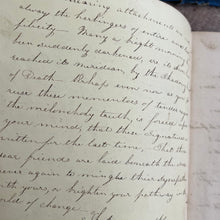 earing attachments
alway the harbingers of entire
plicity - Many a bright morning
been suddenly darkened, or its
reached its meridian, by the Shadow
of Death - Perhaps even now as you
ruse these mementoes of tender
the melancholy truth is forced
your mind, that these signatures
written for the last time. That the
dear friends are laid beneath the
never again to mingle their sympathies
with yours, or brighten your pathway
world of change.